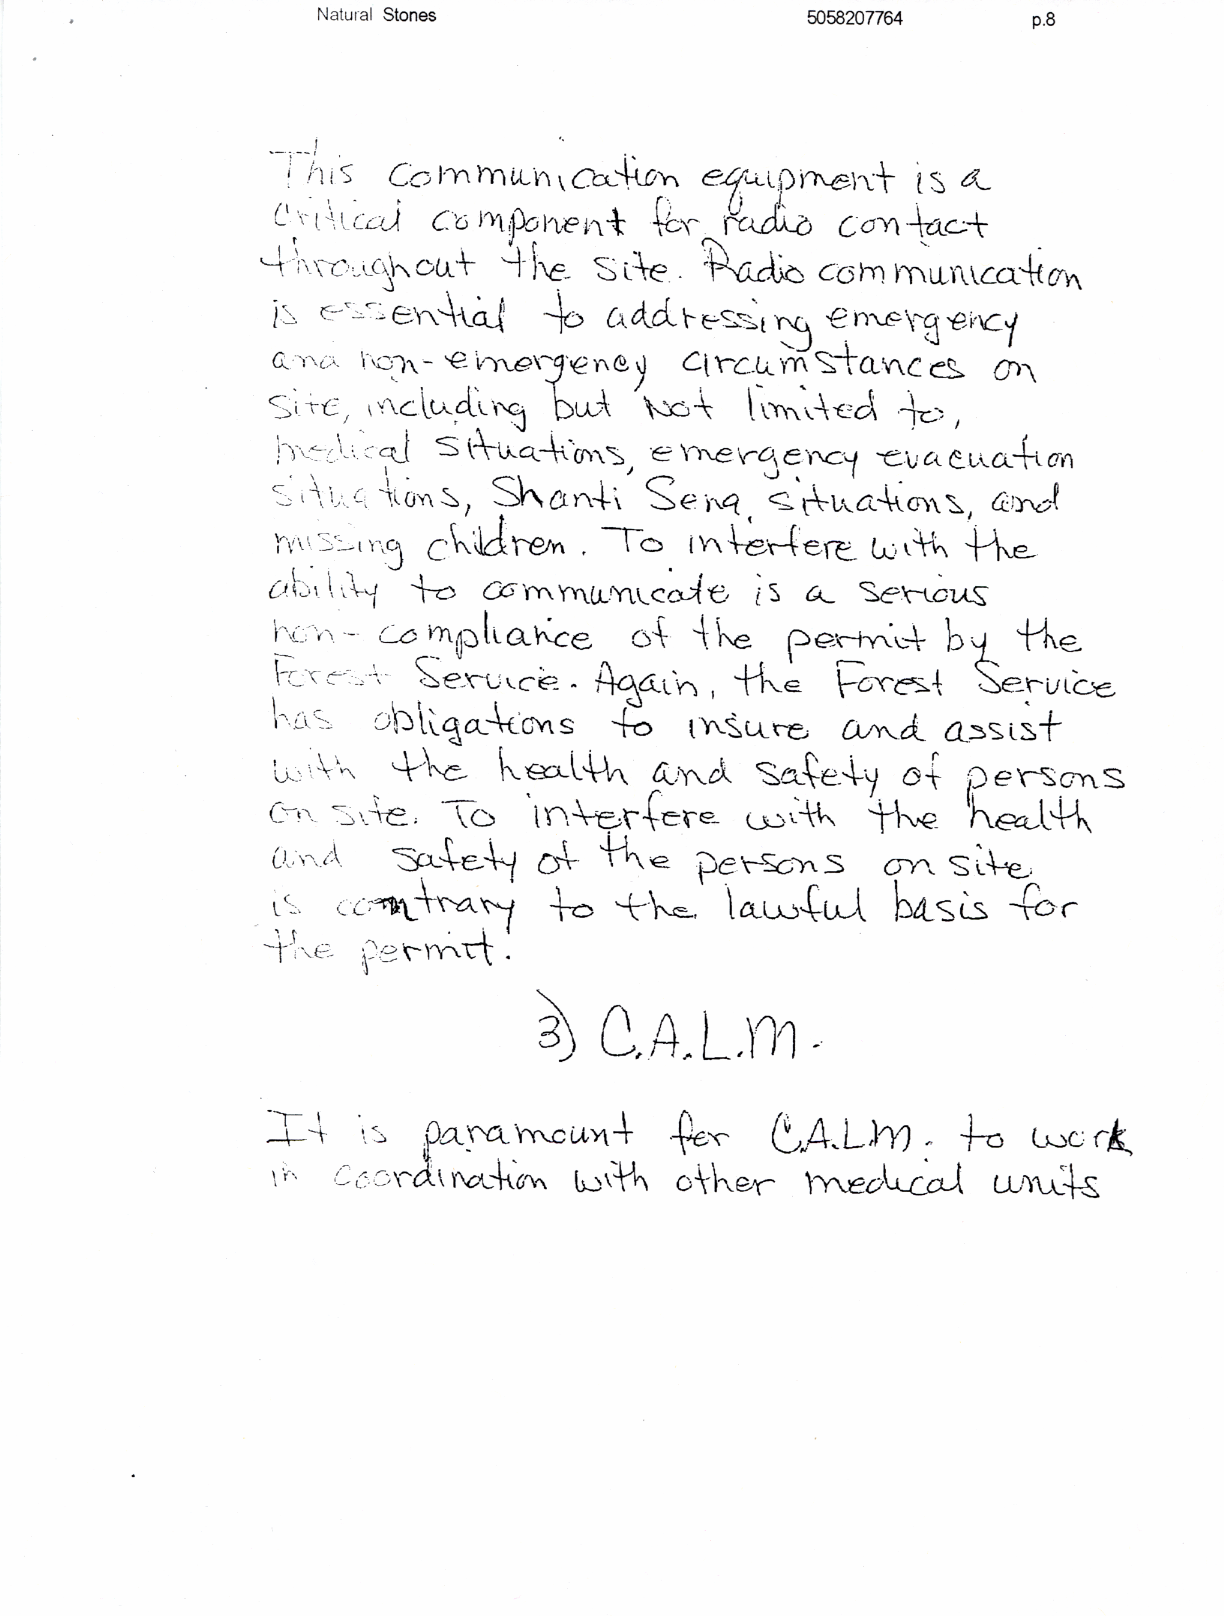 Natural Stones 5058207764 p.8
This communication equipment is a
critical component for radio contact
throughout the site. Radio communication
is essential to addressing emergency
and non-emergency circumstances on
site, including but not limited to,
medical situations, emergency evacuation
situations, Shanti Sena situations, and
missing children. To interfere with the
ability to communicate is a serious
non-compliance of the permit by the
Forest Service. Again, the Forest Service
has obligations to insure and assist
with the health and safety of persons
on site. To interfere with the health
and safety of the persons on site
is contrary to the lawful basis for
the permit.
3) C.A.L.M.
It is paramount for C.A.L.M. to work
in coordination with other medical units